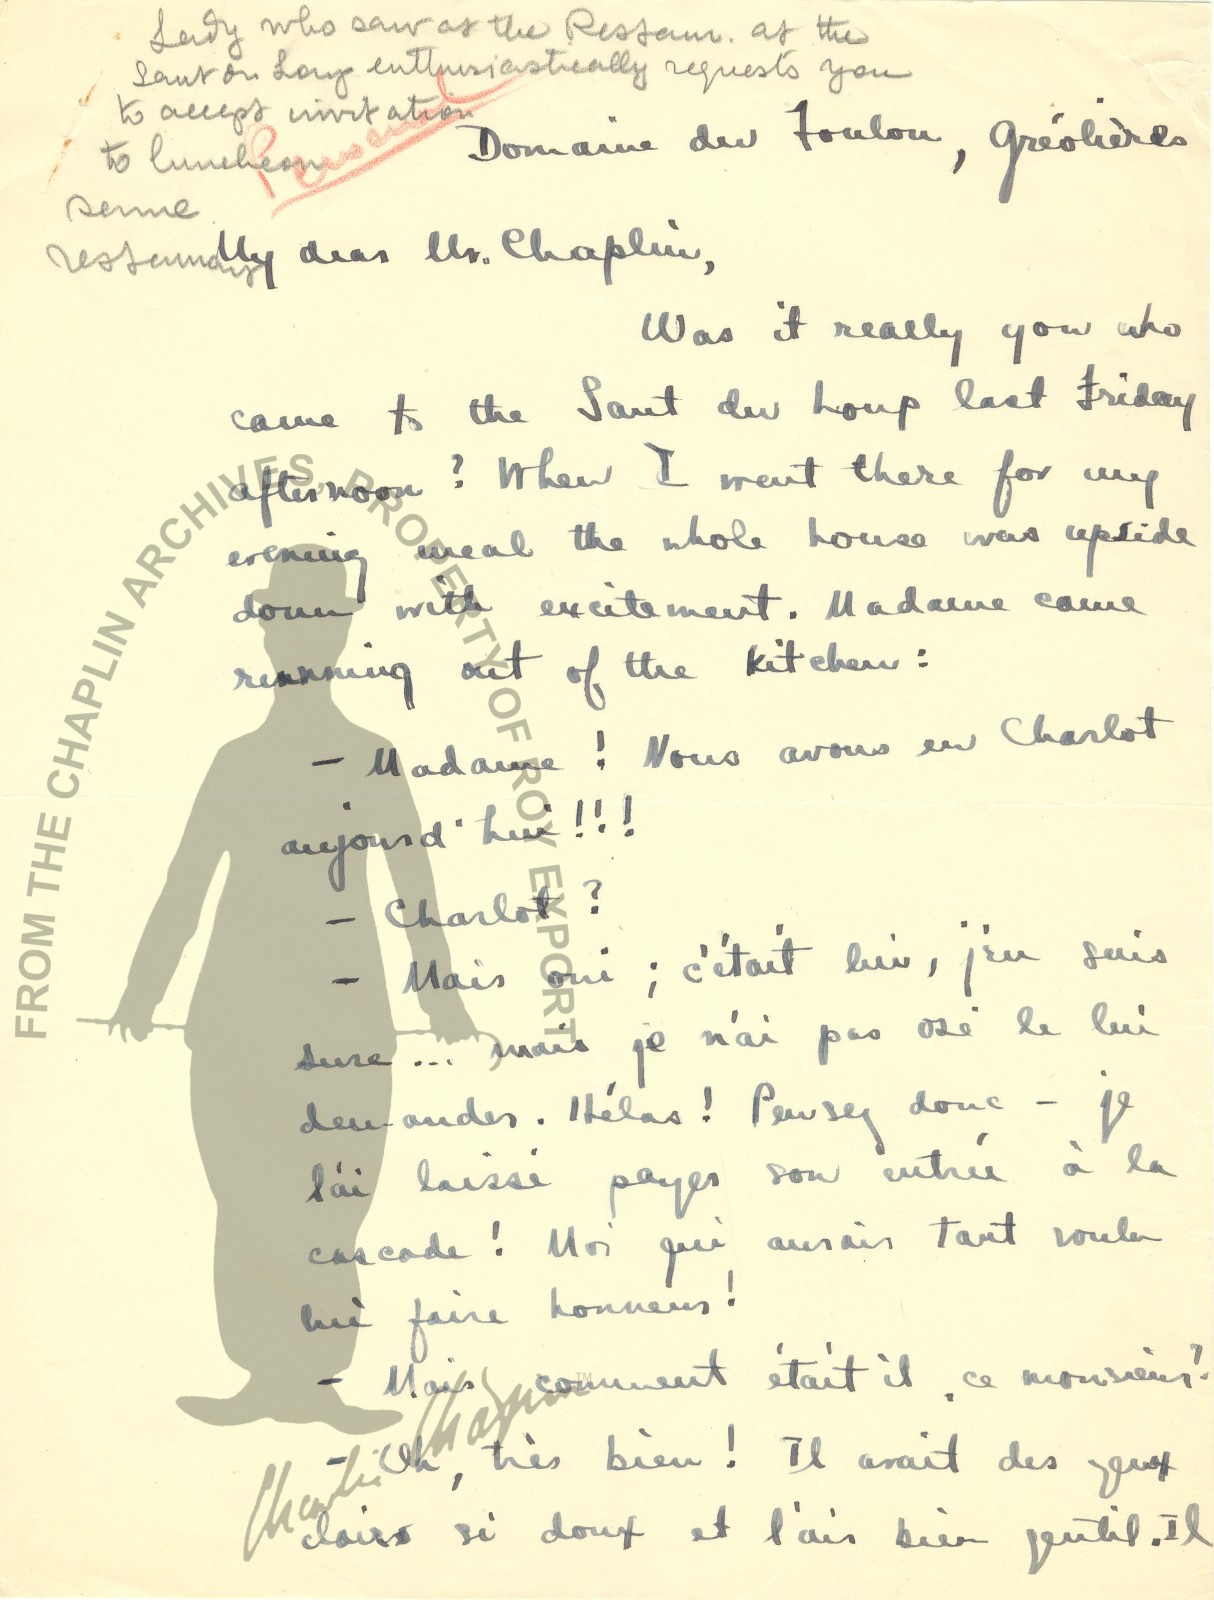 Lady who saw at the Restaur. at the
Saut du Loup enthusiastically requests you
to accept invitation
to luncheon
same
restaurant
Personal
Domaine du Foulon, Gréolières
My dear Mr. Chaplin,
Was it really you who
came to the Saut du Loup last Friday
afternoon? When I went there for my
evening meal the whole house was upside
down with excitement. Madame came
running out of the kitchen:
– Madame! Nous avons eu Charlot
aujourd'hui!!!
– Charlot?
– Mais oui; c'était lui, j'en suis
sure... mais je n'ai pas osé le lui
demander. Hélas! Pensez donc – je
l'ai laissé payer son entrée à la
cascade! Moi qui aurais tant voulu
lui faire honneur!
– Mais comment était il, ce monsieur?
– Oh, très bien! Il avait des yeux
clairs si doux et l'air bien gentil. Il
FROM THE CHAPLIN ARCHIVES, PROPERTY OF ROY EXPORT
Charlie Chaplin
TM